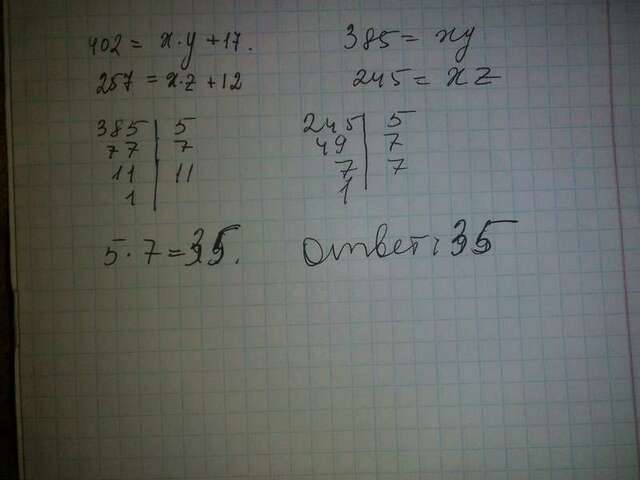 402 = x·y + 17.
257 = x·z + 12
385 = xy
245 = xz
385 | 5
77 | 7
11 | 11
1 |
245 | 5
49 | 7
7 | 7
1 |
5·7=35.
Ответ: 35